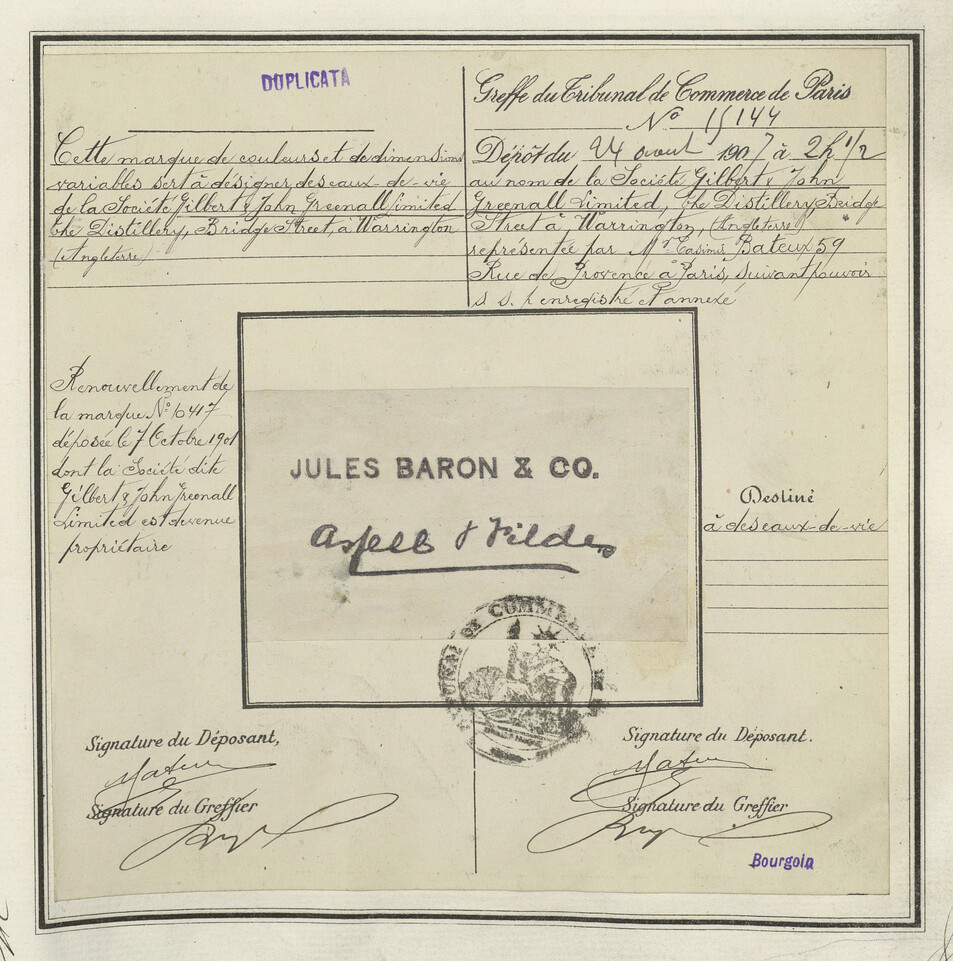 DUPLICATA
Cette marque de couleurs et de dimensions
variables sert à désigner des eaux-de-vie
de la Société Gilbert & John Greenall Limited
the Distillery, Bridge Street, à Warrington
(Angleterre)
Greffe du Tribunal de Commerce de Paris
No 15144
Dépôt du 24 aout 1907 à 2h 1/2
au nom de la Société Gilbert & John
Greenall Limited, the Distillery Bridge
Street à Warrington, (Angleterre)
représentée par Mr Casimir Bateux 59
Rue de Provence à Paris, suivant pouvoir
s s. p enregistré et annexé
Renouvellement de
la marque No
déposée le 7 Octobre 1901
dont la Société dite
Gilbert & John Greenall
Limited est devenue
propriétaire
JULES BARON & CO.
&
Destiné
à des eaux-de-vie
COMMERCE
Signature du Déposant,
Signature du Greffier
Signature du Déposant.
Signature du Greffier
Bourgoin